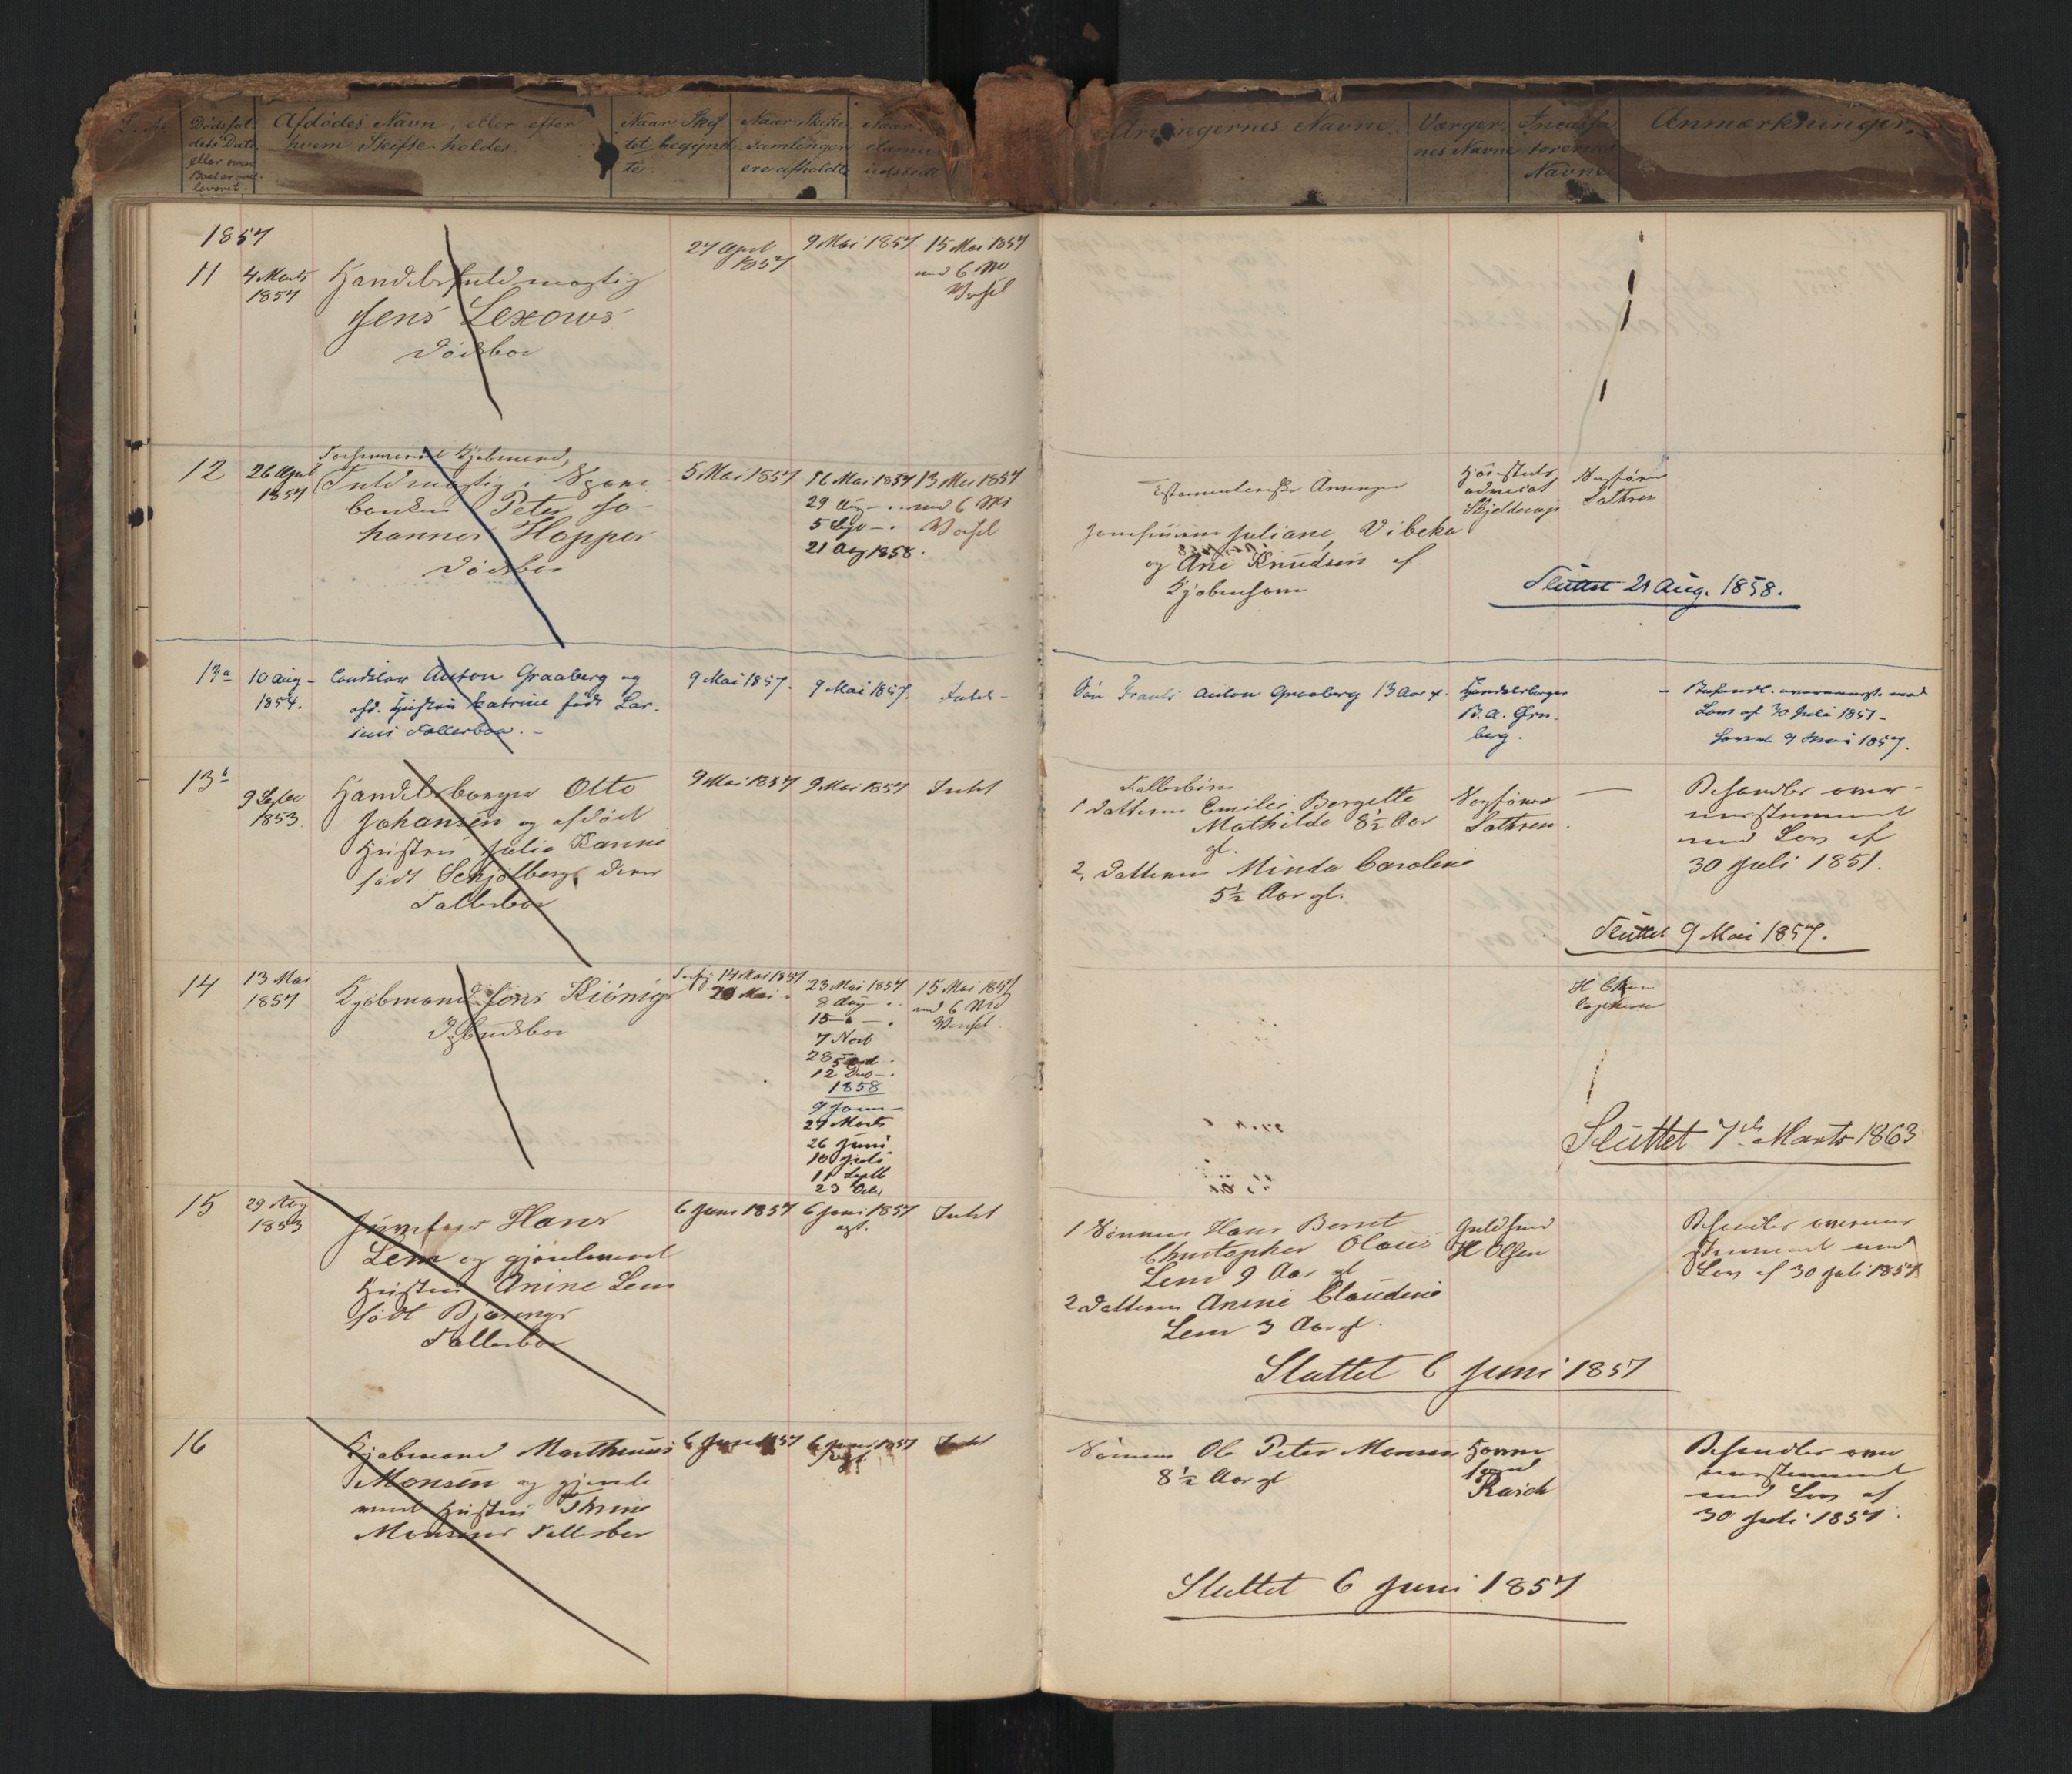 Dødsfal-
dets Dato
eller naar
Boet er over-
leveret.
Afdødes Navn, eller efter
hvem Skifte holdes.
Naar Skif-
tet begynd-
te.
Naar Skifte
samlinger
ere afholdte
Naar
udstedt
Arvingernes Navne.
Værger-
nes Navne
Incassa-
torernes
Navne
Anmærkninger.
1857
11
4 Marts
1857
Handelsfuldmægtig
Jens Lexows
Dødsboe
27 April
1857
9 Mai 1857
15 Mai 1857
med 6 Md
Varsel
12
26 April
1857
Kjøbmand,
Fuldmægtig i
banken Peter Jo-
hannes Hopper
Dødsboe
5 Mai 1857
16 Mai 1857
29 Aug
5 Sep
21 Aug 1858.
13 Mai 1857
med 6 Md
Varsel
Testamentariske Arvinger
Jomfruerne Juliane, Vibeka
og Ane Knudsen af
Kjøbenhavn
advocat
Skjelderup
Sathren
Sluttet 21 Aug. 1858.
13a
10 Aug
1854.
Anton Graaberg og
afd. Hustru Katrine født Lar-
sens Fællesboe.
9 Mai 1857.
9 Mai 1857.
Intet
Søn Frants Anton Graaberg 13 Aar gl.
Handelsborger
B. A. Grn-
berg.
Behandl. overensst. med
Lov af 30 Juli 1851
Sluttet 9 Mai 1857.
13b
9 Septbr
1853.
Handelsborger Otto
Johansen og afdød
Hustru Julie Hanne
født Schjølberg deres
Fællesboe
9 Mai 1857
9 Mai 1857
Intet
Fællesbørn
1 Datteren Emilie Bergitte
Mathilde 8½ Aar
gl.
2. Datteren Minda Caroline
5½ Aar gl.
Sathren.
Behandles over-
ensstemmende
med Lov af
30 Juli 1851.
Sluttet 9 Mai 1857.
14
13 Mai
1857
Kjøbmand Jens Kiønigs
Opbudsboe
14 Mai 1857
20 Mai
23 Mai 1857
8 Aug
15
7 Novb
28
12 Dec
1858
9 Janu
27 Marts
26 Juni
10 Juli
11 Septb
23 Octb
15 Mai 1857
med 6 Md
Varsel
Sluttet 7de Marts 1863
15
29 Aug
1853
Hans
Lem og gjenlevend
Hustru Anine Lem
født Bjørings
Fællesboe
6 Juni 1857
6 Juni 1857
Intet
1 Sønnen Hans Bernt
Christopher Olaus
Lem 9 Aar gl
2 Datteren Anine Claudine
Lem 3 Aar gl.
H Olsen
Behandles overens
stemmende med
Lov af 30 Juli 1851
Sluttet 6 Juni 1857
16
Kjøbmand Marthinus
Monsen og gjenle
vend Hustru Thrine
Monsens Fællesboe
6 Juni 1857
6 Juni 1857
Intet
Sønnen Ole Peter Monsen
8½ Aar gl
Rasch
Behandles over
ensstemmend
med Lov af
30 Juli 1851.
Sluttet 6 Juni 1857